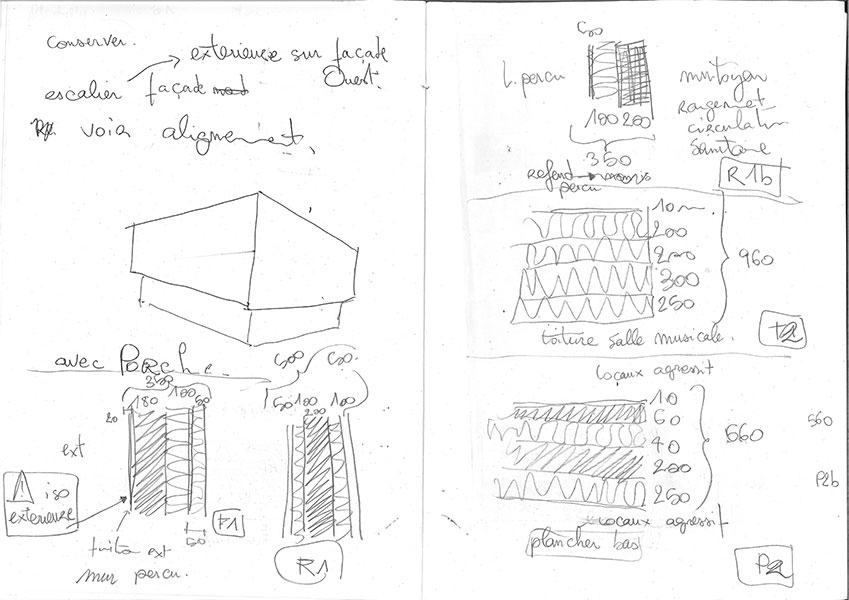 conserver.
exterieuse sur façade
Ouest.
escalier façade
voir alignement.
avec PORChe
350
180 100 50
20
ext
⚠ iso
exterieuse
50
F1
ext
mur percu.
50 100 200 100
R1
L. percu
mitoyen
rangement
circulation
Sanitaire
100 200
350
Refend
percu
R1b
10
200
200
300
250
960
toiture salle musicale.
t2
Locaux agressif
10
60
40
200
250
560
560
P2b
Locaux agressif
plancher bas
P2